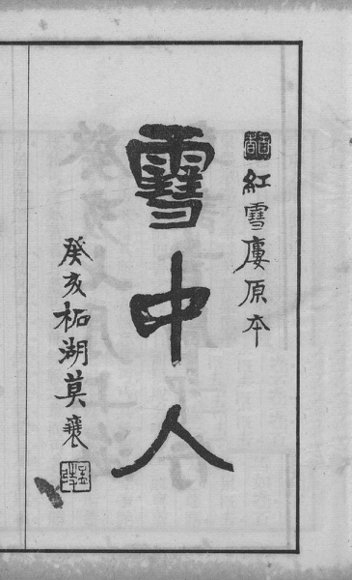 紅雪廔原本
雪中人
癸亥柘湖莫襄